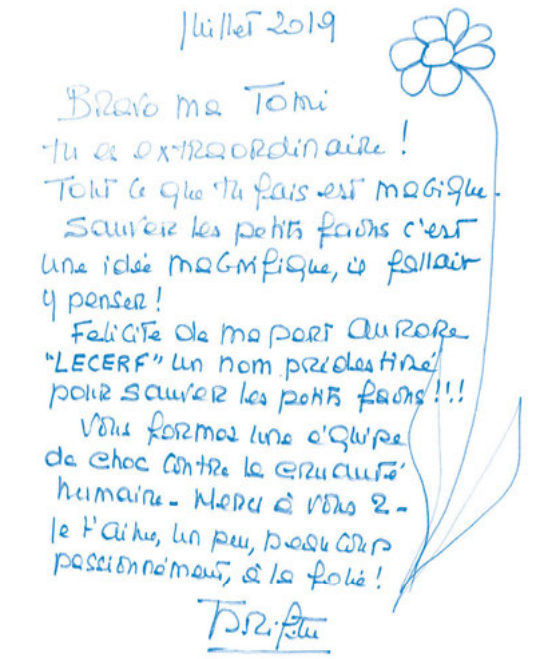 Juillet 2019
Bravo ma Tomi
tu es extraordinaire !
Tout ce que tu fais est magique.
Sauver les petits faons c'est
une idée magnifique, il fallait
y penser !
Felicite de ma part Aurore
"LECERF" un nom prédestiné
pour sauver les petits faons !!!
Vous formez une équipe
de choc contre la cruauté
humaine - Merci à vous 2 -
Je t'aime, un peu, beaucoup
passionnément, à la folie !